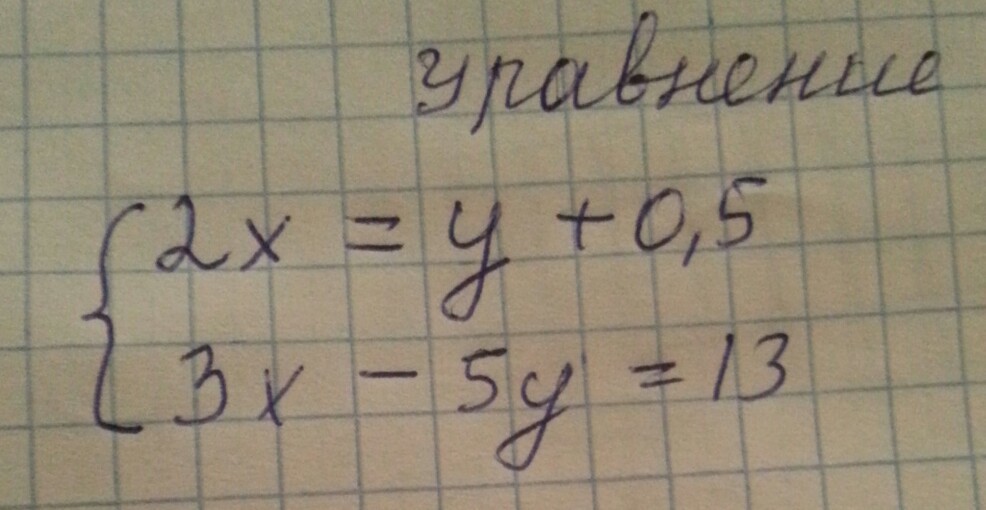 уравнение
2x = y + 0,5
3x - 5y = 13